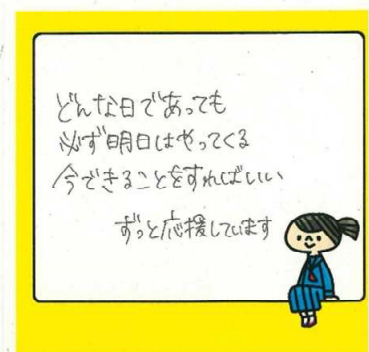 どんな日であっても
必ず明日はやってくる
今できることをすればいい
ずっと応援しています